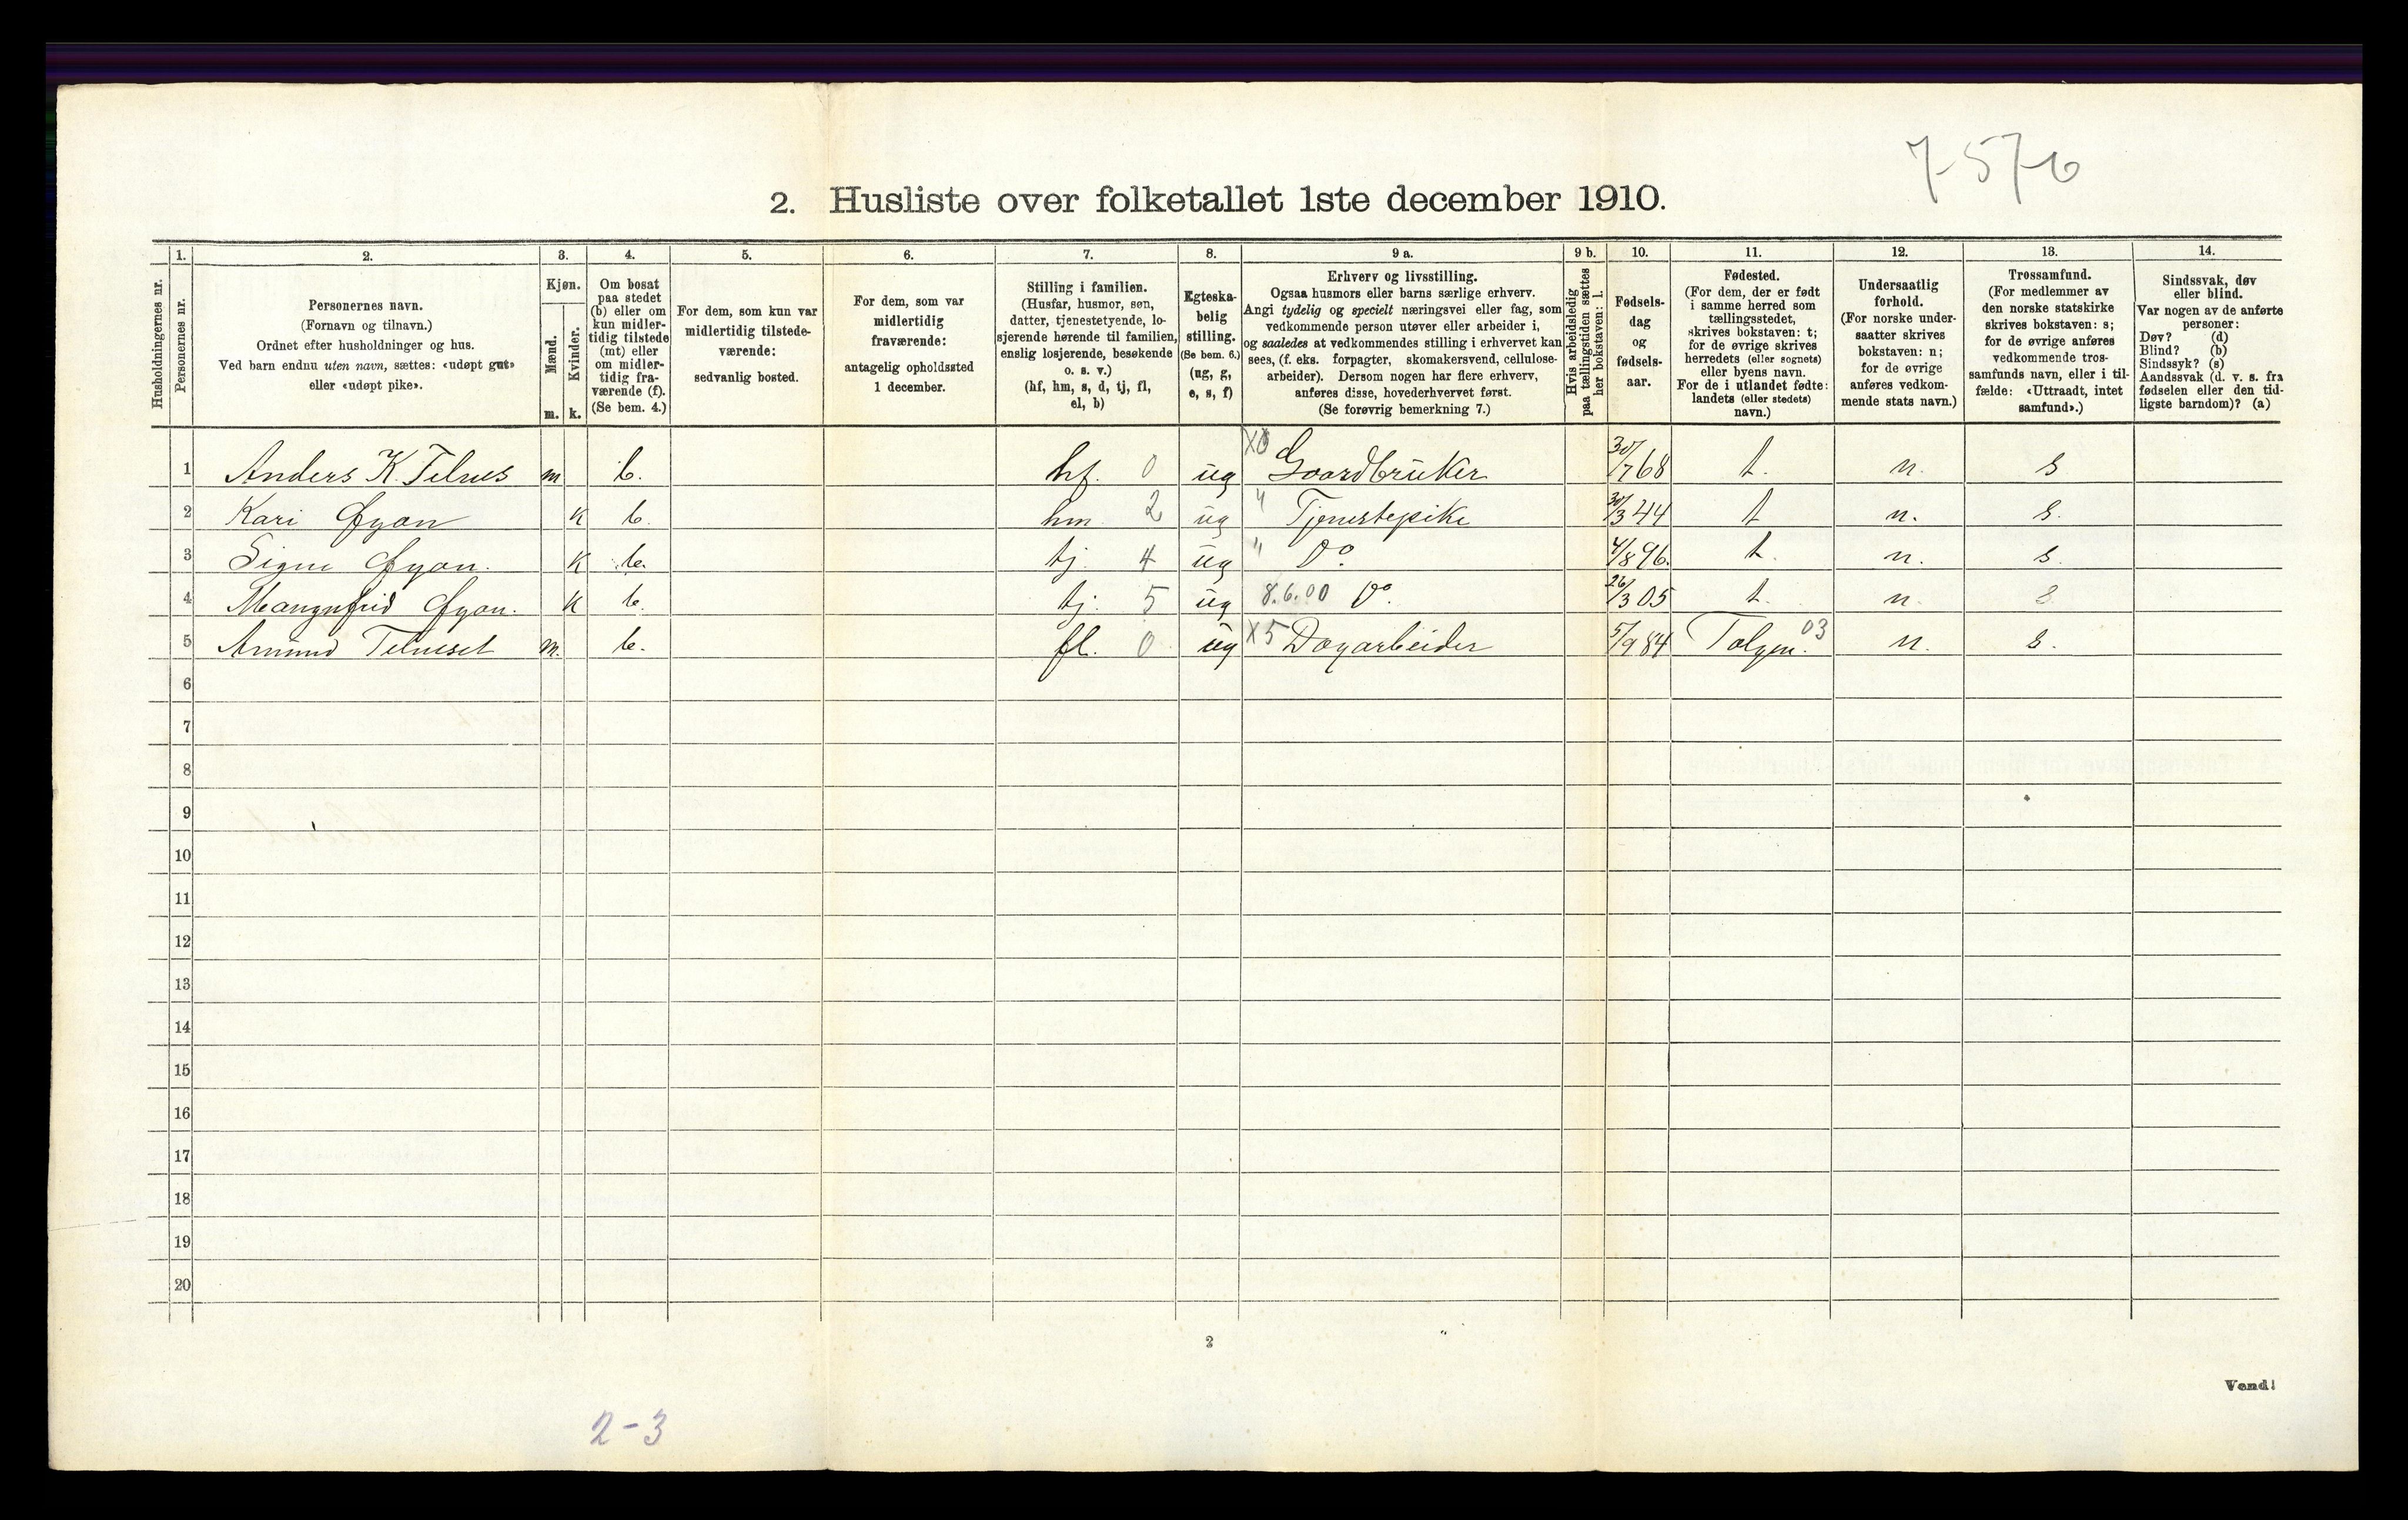 7-57-6
2. Husliste over folketallet 1ste december 1910.
Husholdningernes nr.
1.
Personernes nr.
2.
Personernes navn.
(Fornavn og tilnavn.)
Ordnet efter husholdninger og hus.
Ved barn endnu uten navn, sættes: «udøpt gut»
eller «udøpt pike».
3.
Kjøn.
Mænd.
m.
Kvinder.
k.
4.
Om bosat
paa stedet
(b) eller om
kun midler-
tidig tilstede
(mt) eller
om midler-
tidig fra-
værende (f).
(Se bem. 4.)
5.
For dem, som kun var
midlertidig tilstede-
værende:
sedvanlig bosted.
6.
For dem, som var
midlertidig
fraværende:
antagelig opholdssted
1 december.
7.
Stilling i familien.
(Husfar, husmor, søn,
datter, tjenestetyende, lo-
sjerende hørende til familien,
enslig losjerende, besøkende
o. s. v.)
(hf, hm, s, d, tj, fl,
el, b)
8.
Egteska-
belig
stilling.
(Se bem. 6.)
(ug, g,
e, s, f)
9 a.
Erhverv og livsstilling.
Ogsaa husmors eller barns særlige erhverv.
Angi tydelig og specielt næringsvei eller fag, som
vedkommende person utøver eller arbeider i,
og saaledes at vedkommendes stilling i erhvervet kan
sees, (f. eks. forpagter, skomakersvend, cellulose-
arbeider). Dersom nogen har flere erhverv,
anføres disse, hovederhvervet først.
(Se forøvrig bemerkning 7.)
9 b.
Hvis arbeidsledig
paa tællingstiden sættes
her bokstaven: l.
10.
Fødsels-
dag
og
fødsels-
aar.
11.
Fødested.
(For dem, der er født
i samme herred som
tællingsstedet,
skrives bokstaven: t;
for de øvrige skrives
herredets (eller sognets)
eller byens navn.
For de i utlandet fødte:
landets (eller stedets)
navn.)
12.
Undersaatlig
forhold.
(For norske under-
saatter skrives
bokstaven: n;
for de øvrige
anføres vedkom-
mende stats navn.)
13.
Trossamfund.
(For medlemmer av
den norske statskirke
skrives bokstaven: s;
for de øvrige anføres
vedkommende tros-
samfunds navn, eller i til-
fælde: «Uttraadt, intet
samfund».)
14.
Sindssvak, døv
eller blind.
Var nogen av de anførte
personer:
Døv? (d)
Blind? (b)
Sindssyk? (s)
Aandssvak (d. v. s. fra
fødselen eller den tid-
ligste barndom)? (a)
1 Anders K. Telnes m b. hf. 0 ug X0 Gaardbruker 30/7 68 t. n. s
2 Kari k b. hm 2 ug " Tjenestepike 30/3 44 t n. s.
3 Signe k b. tj. 4 ug " Do. 4/8 96. t. n. s.
4 k b. tj. 5 ug 8.6.00 Do. 26/3 05 t. n s
5 Amund Telneset m. b. fl. 0 ug X5 Dagarbeider 5/9 84 Tolgen. 03 n. s.
6
7
8
9
10
11
12
13
14
15
16
17
18
19
20
2
Vend!
2-3